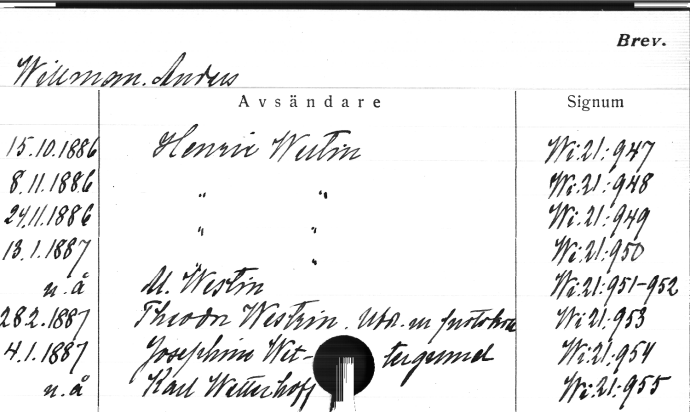 Brev.
Willman. Anders
Avsändare Signum
15.10.1886 Henric Westin Wi:21:947
8.11.1886 " " Wi:21:948
24.11.1886 " " Wi:21:949
13.1.1887 " Wi:21:950
u.å U. Westin Wi:21:951-952
28.2.1887 Theodor Westrin. Utd. ur protokoll Wi:21:953
4.1.1887 Josephine Wet- tergrund Wi:21:954
u.å Karl Wetterhoff Wi:21:955